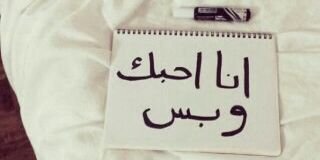 انا احبك
وبس